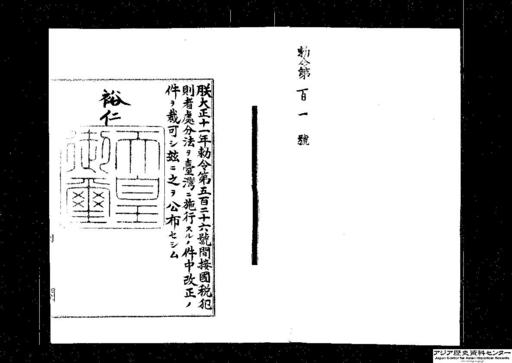 勅令第百一號
朕大正十一年勅令第五百二十六號間接國税犯
則者處分法ヲ臺灣ニ施行スルノ件中改正ノ
件ヲ裁可シ玆ニ之ヲ公布セシム
裕仁
天皇
御璽
アジア歴史資料センター
Japan Center for Asian Historical Records